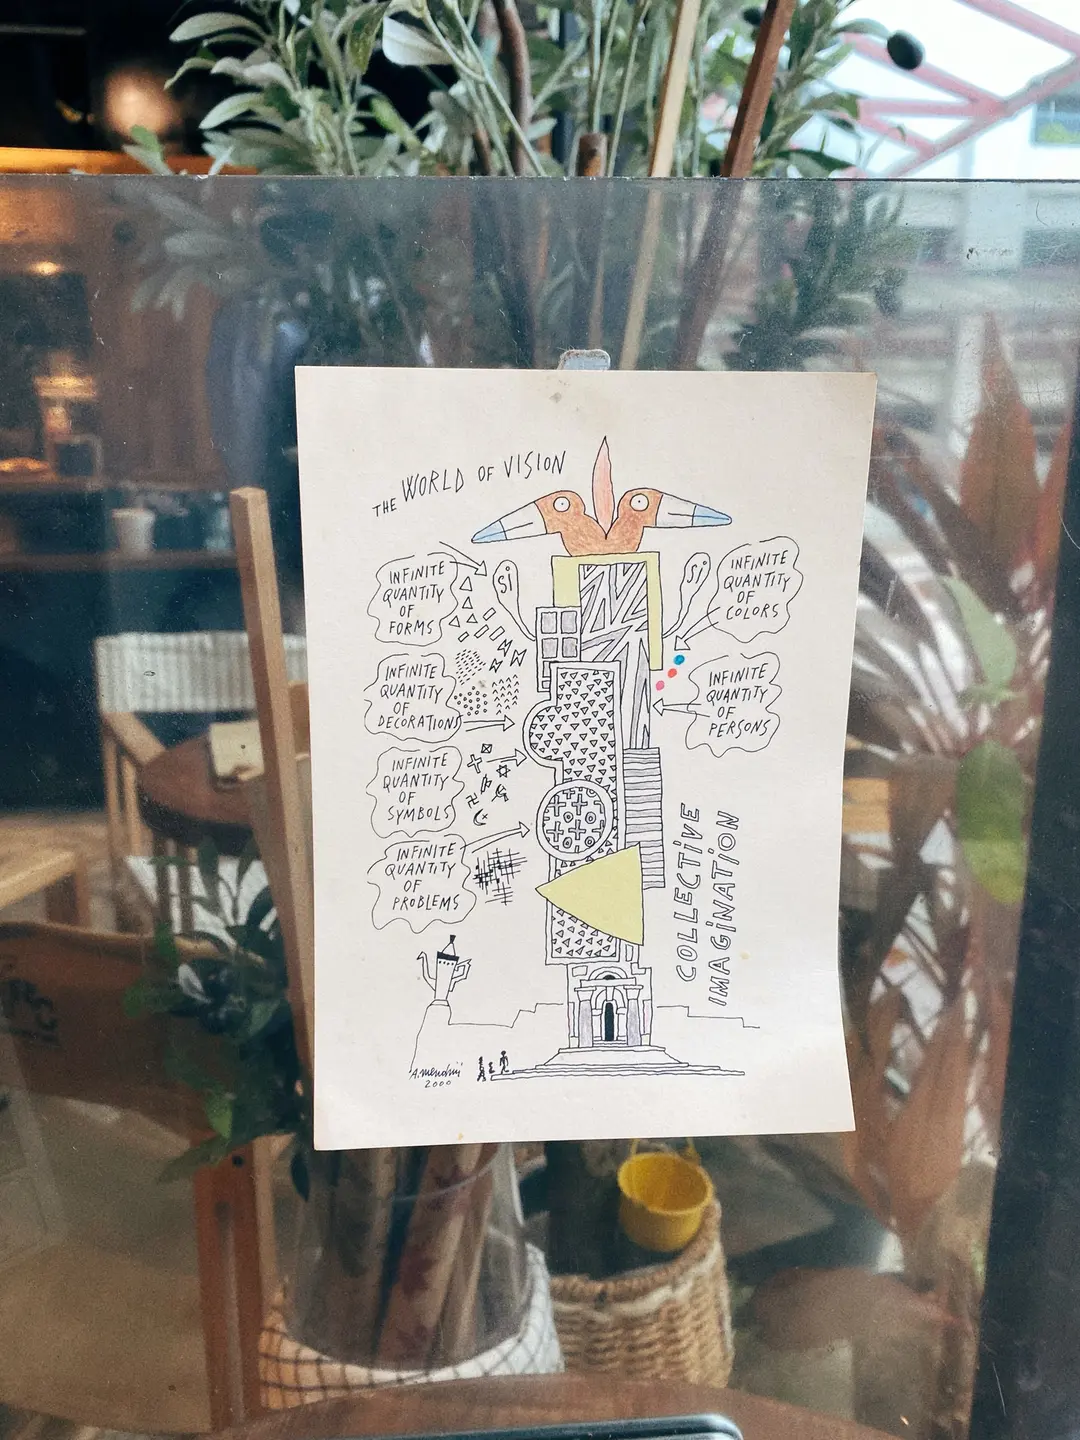 THE WORLD OF VISION
INFINITE
QUANTITY
OF
FORMS
Si
Si
INFINITE
QUANTITY
OF
COLORS
INFINITE
QUANTITY
OF
DECORATIONS
INFINITE
QUANTITY
OF
PERSONS
INFINITE
QUANTITY
OF
SYMBOLS
INFINITE
QUANTITY
OF
PROBLEMS
COLLECTIVE
IMAGiNATiON
A. Mendini
2000